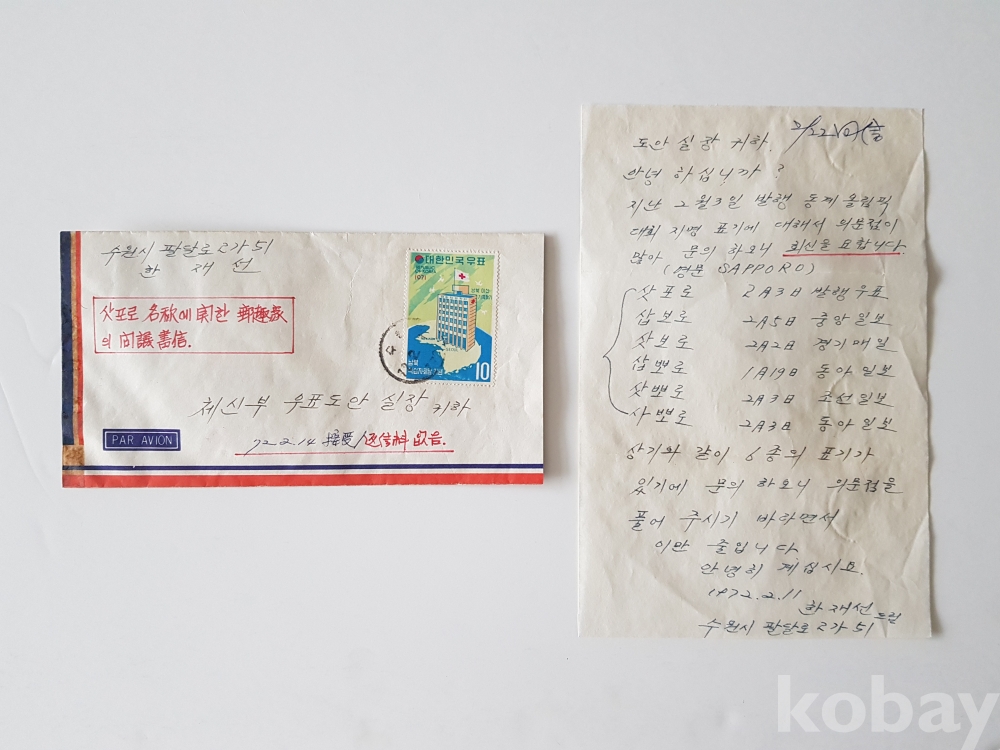 수원시 팔달로 2가 51
한 재 선
삿포로 名称에 関한 郵趣家
의 問議書信.
대한민국우표
1971
10
체신부 우표도안 실장 귀하
PAR AVION
72.2.14 接受/返信料 없음.
2/22
도안 실장 귀하.
안녕 하십니까?
지난 2월3일 발행 동계 올림픽
대회 지명 표기에 대해서 의문점이
많아 문의 하오니 회신을 요합니다.
(영문 SAPPORO)
삿포로 2月3日 발행우표
삽보로 2月5日 중앙일보
삿보로 2月2日 경기매일
삽뽀로 1月19日 동아일보
삿뽀로 2月3日 조선일보
사뽀로 2月3日 동아일보
상기와 같이 6종의 표기가
있기에 문의 하오니 의문점을
풀어 주시기 바라면서
이만 줄입니다.
안녕히 계십시요.
1972.2.11
한재선 드림
수원시 팔달로 2가 51
kobay